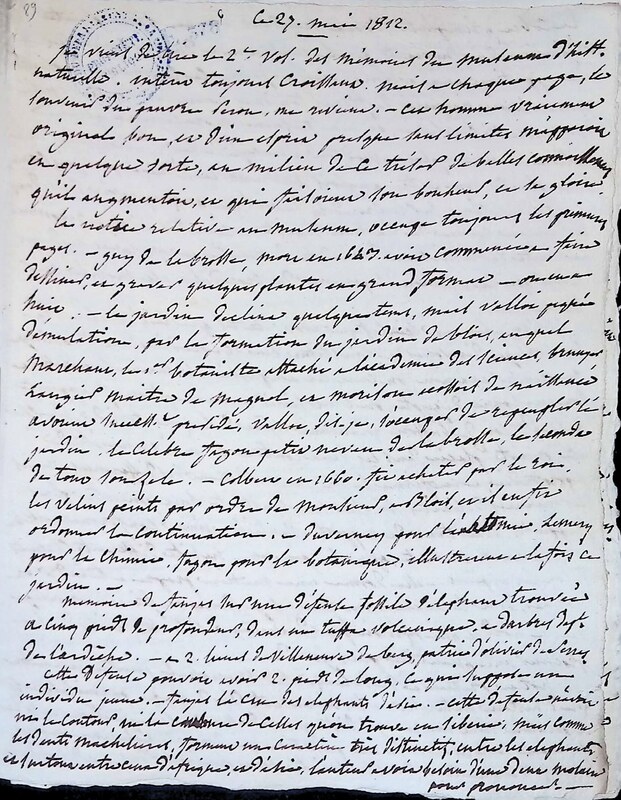 89
Ce 27. mai 1812.
je viens de lire le 2e vol. des mémoires du museum d'hist.
naturelle. intérêt toujours croissant. mais a chaque page, le
souvenir du pauvre me revient. - cet homme vraiment
original bon, et d'un esprit presque sans limites m'apparoit
en quelque sorte, au milieu de ce trésor de belles connoissances
qu'il augmentoit, et qui faisoient son bonheur, et sa gloire
la notice relative au museum, occupe toujours les premieres
pages. - guy de la brosse, mort en 1643 avoit commencé a faire
dessiner, et graver quelques plantes en grand format -
le jardin declina quelque tems, mais vallot piqué
d'emulation, par la formation du jardin de blois, auquel
marchant, le 1er botaniste attaché a l'académie des sciences, brunyer
laugier maitre de magnol, et morison ecossois
avoient success.t présidé, vallot, dis-je, s'occupa de repeupler le
jardin. le célèbre fagon petit neveu de la brosse, le seconda
de tout son zele. - Colbert en 1660. fit acheter par le roi,
les velins peints par ordre de monsieur, a blois, et il en fit
ordonner la continuation. - duverney pour l'anatomie, Lemery
pour la chimie, fagon pour la botanique, illustrerent a la fois ce
jardin. -
mémoire de faujas sur une défense fossile d'elephant trouvée
a cinq pieds de profondeur, dans un tuffa volcanique, a darbres dept.
de lardèche. - a 2. lieues de villeneuve de berg, patrie d'olivier de serres
cette défense pouvoit avoir 2. pieds de long, ce qui suppose un
individu jeune. - faujas le croit des elephants d'asie. - cette defense n'avoit
ni le contour ni la de celles qu'on trouve en siberie, mais comme
les dents machelieres, forment un caractère très distinctif, entre les elephants
et surtout entre ceux d'afrique, et d'asie, l'auteur avoit besoin d'une dent molaire
pour prononcer -